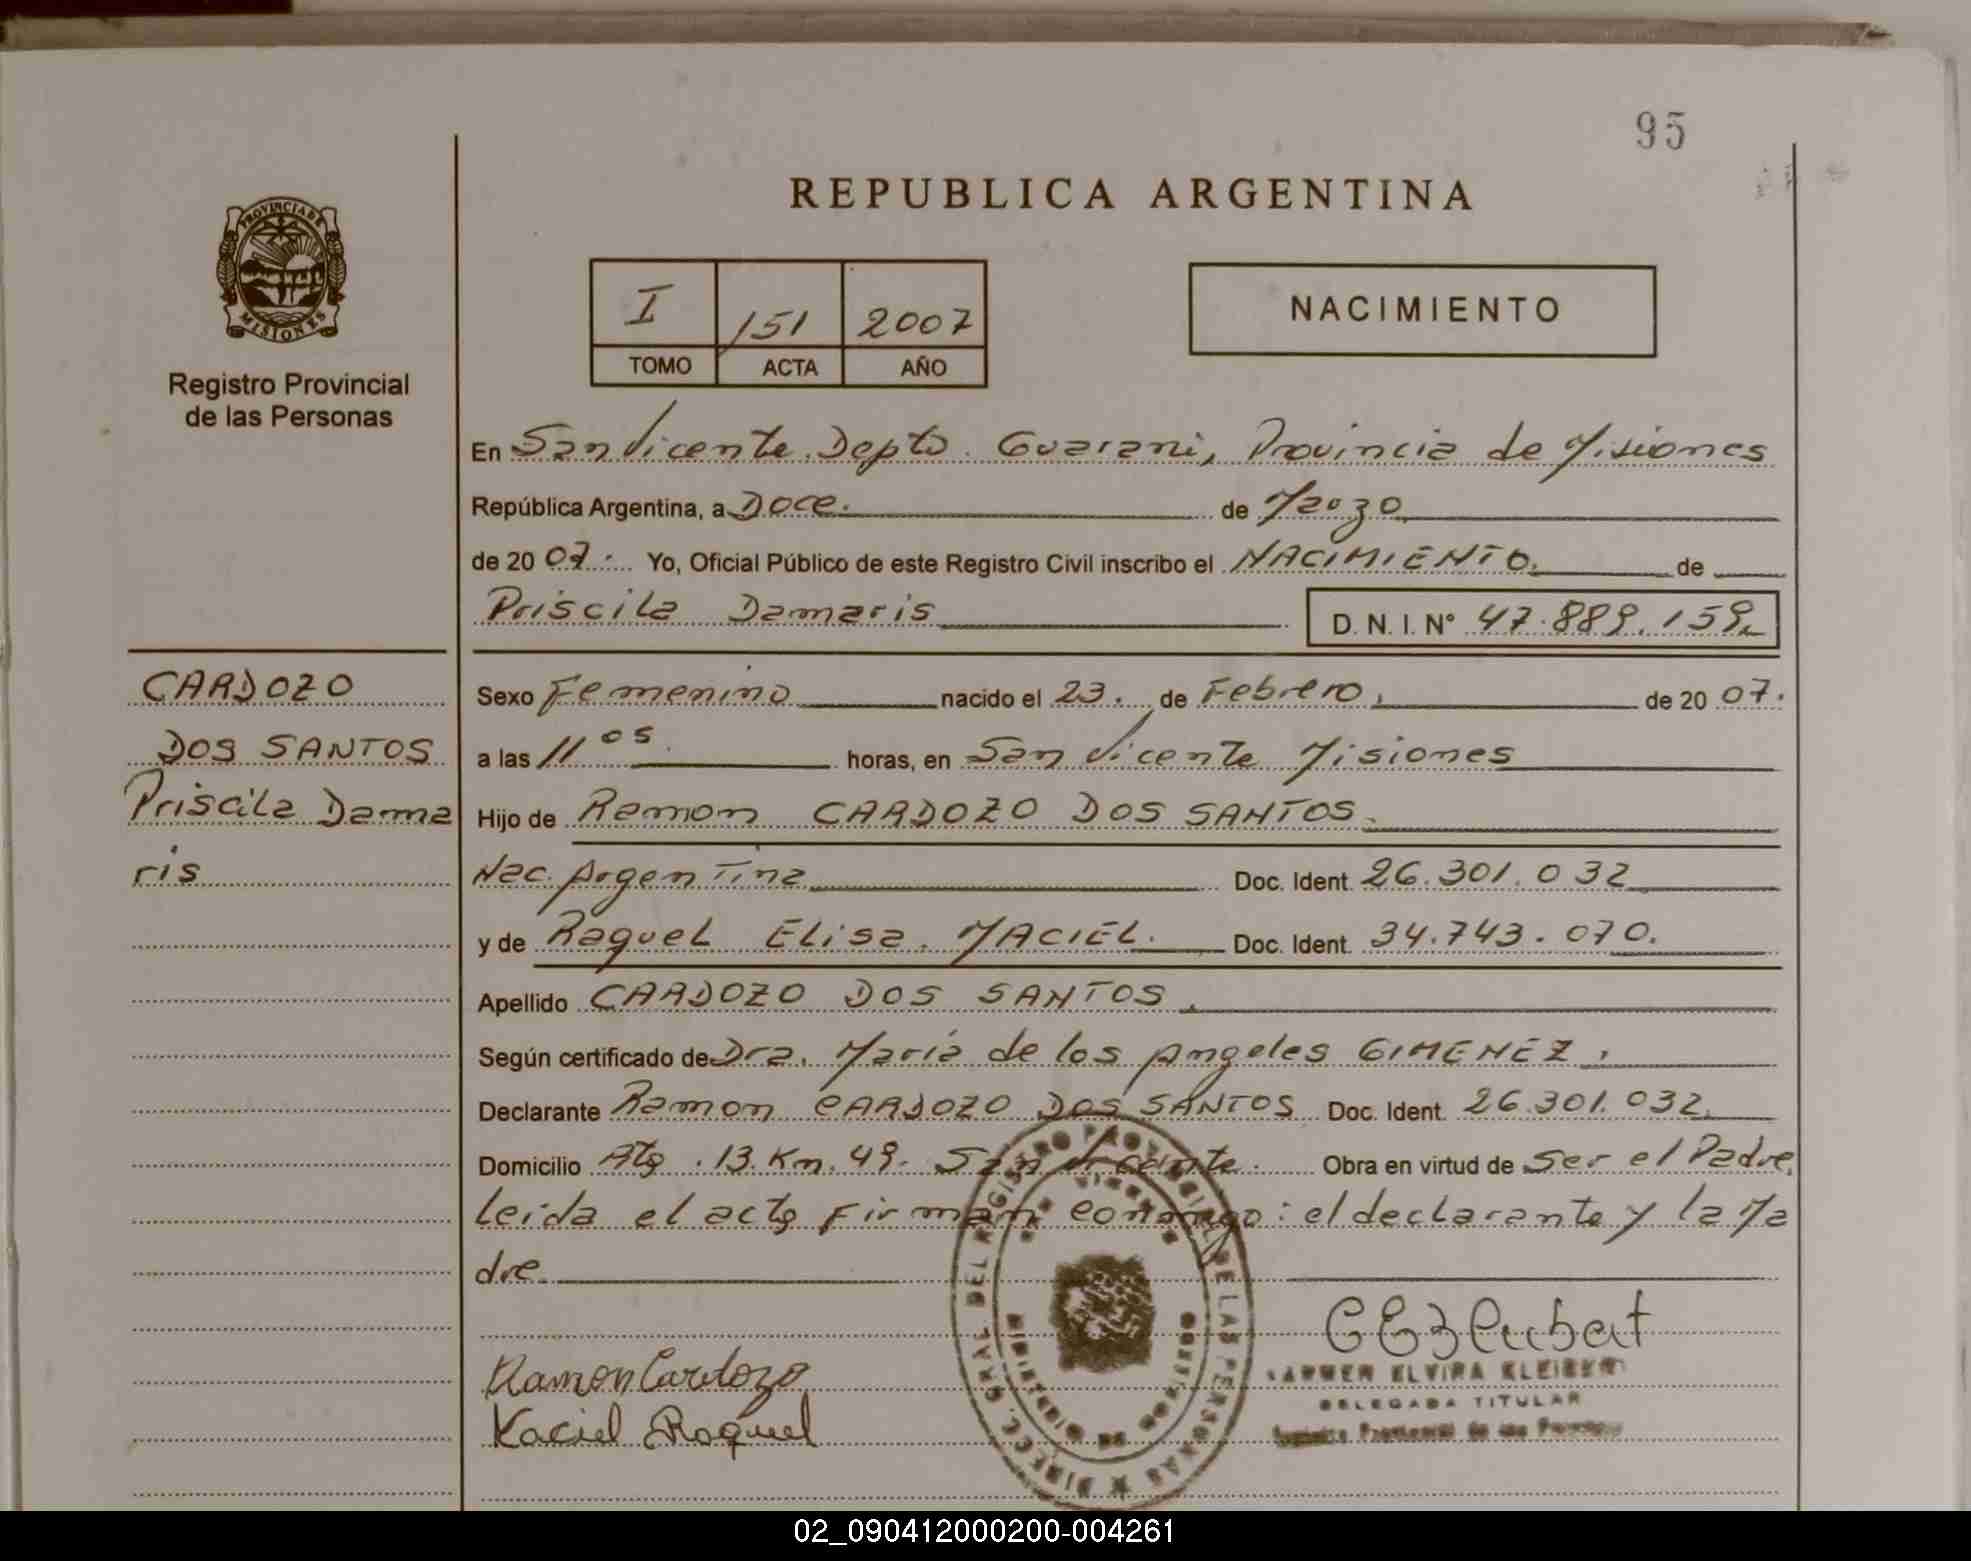 95
REPUBLICA ARGENTINA
PROVINCIA DE
MISIONES
Registro Provincial
de las Personas
I 151 2007
TOMO ACTA AÑO
NACIMIENTO
En San Vicente Depto. Guarani, Provincia de Misiones
República Argentina, a Doce. de Marzo
de 20 07. Yo, Oficial Público de este Registro Civil inscribo el NACIMIENTO. de
Priscila Damaris D. N. I. N° 47.889.159
CARDOZO
DOS SANTOS
Priscila Dama
ris
Sexo Femenino nacido el 23. de Febrero, de 20 07.
a las 11 05 horas, en San Vicente Misiones
Hijo de Ramon CARDOZO DOS SANTOS.
Nac. Argentina Doc. Ident. 26.301.032
y de Raquel Elisa MACIEL. Doc. Ident. 34.743.070.
Apellido CARDOZO DOS SANTOS.
Según certificado de Dra. Maria de los Angeles GIMENEZ.
Declarante Ramon CARDOZO DOS SANTOS Doc. Ident. 26.301.032.
Domicilio 13. Km. 49. San Vicente. Obra en virtud de Ser el Padre,
Leida el acta firman conmigo: el declarante y la Ma
dre.
Ramon Cardozo
Maciel Raquel
CARMEN ELVIRA
DELEGADA TITULAR
Registro Provincial de las Personas
DIRECC. GRAL. DEL REGISTRO PROVINCIAL DE LAS PERSONAS
02_090412000200-004261